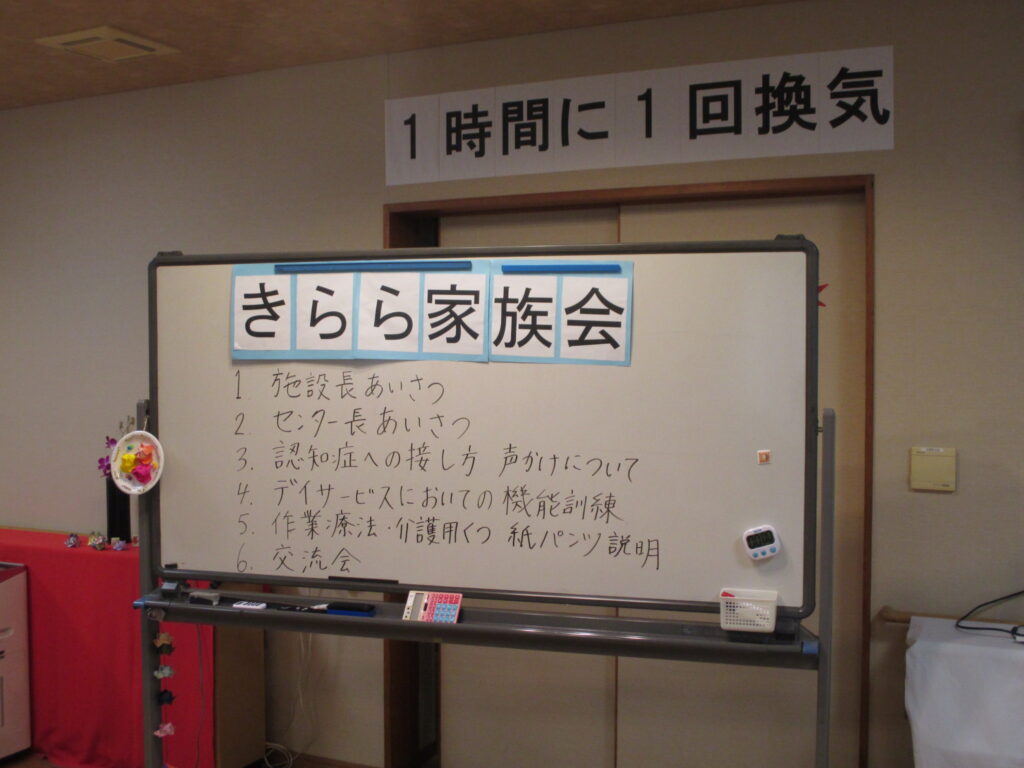 1時間に1回換気
きらら家族会
1 施設長あいさつ
2. センター長あいさつ
3. 認知症への接し方 声かけについて
4. デイサービスにおいての機能訓練
5. 作業療法・介護用くつ 紙パンツ説明
6. 交流会